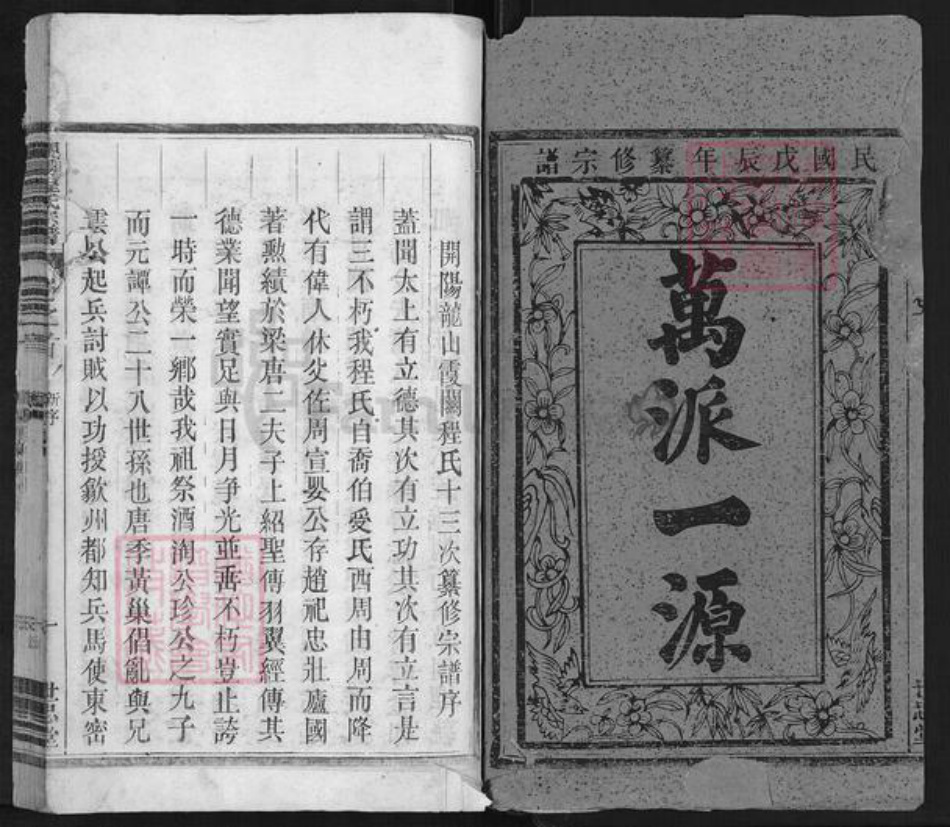 民國戊辰年纂修宗譜
萬派一源
開陽龍山霞關程氏十三次纂修宗譜序
蓋聞太上有立德其次有立功其次有立言是
謂三不朽我程氏自喬伯受氏西周由周而降
代有偉人休父佐周宣嬰公存趙祀忠壯廬國
著勲績於梁唐二夫子上紹聖傳羽翼經傳其
德業聞望實足與日月争光並垂不朽豈止誇
一時而榮一鄉哉我祖祭酒洵公珍公之九子
而元譚公二十八世孫也唐季黃巢倡亂與兄
雲公起兵討賊以功授歙州都知兵馬使東密
世忠堂